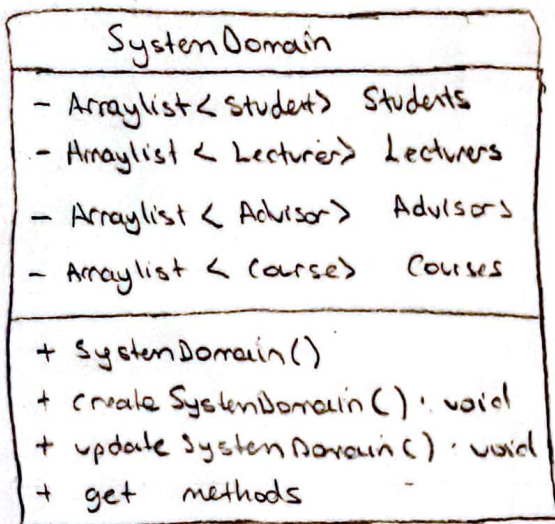 SystemDomain
- Arraylist<Student> Students
- Arraylist < Lecturer> Lecturers
- Arraylist < Advisor> Advisors
- Arraylist < Course> Courses
+ SystemDomain()
+ create SystemDomain() : void
+ update SystemDomain() : void
+ get methods